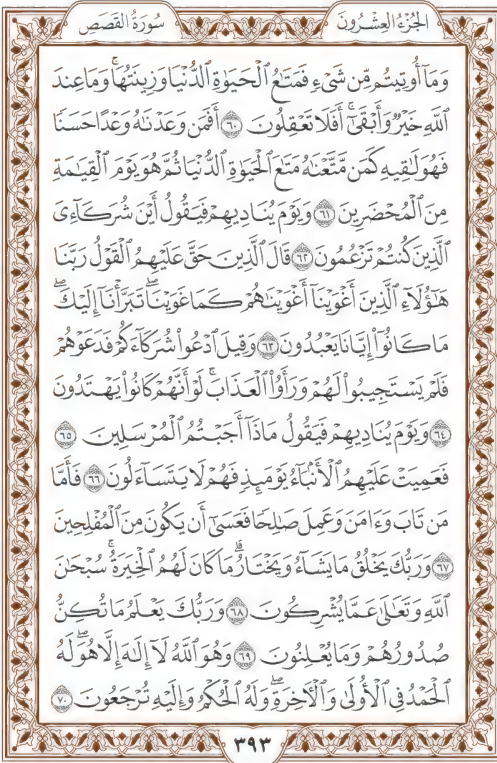 الجُزْءُ العِشْرُونَ
سُورَةُ القَصَصِ
وَمَآ أُوتِيتُم مِّن شَىْءٍ فَمَتَـٰعُ ٱلْحَيَوٰةِ ٱلدُّنْيَا وَزِينَتُهَا ۚ وَمَا عِندَ
ٱللَّهِ خَيْرٌ وَأَبْقَىٰٓ ۚ أَفَلَا تَعْقِلُونَ ٦٠ أَفَمَن وَعَدْنَـٰهُ وَعْدًا حَسَنًا
فَهُوَ لَـٰقِيهِ كَمَن مَّتَّعْنَـٰهُ مَتَـٰعَ ٱلْحَيَوٰةِ ٱلدُّنْيَا ثُمَّ هُوَ يَوْمَ ٱلْقِيَـٰمَةِ
مِنَ ٱلْمُحْضَرِينَ ٦١ وَيَوْمَ يُنَادِيهِمْ فَيَقُولُ أَيْنَ شُرَكَآءِىَ
ٱلَّذِينَ كُنتُمْ تَزْعُمُونَ ٦٢ قَالَ ٱلَّذِينَ حَقَّ عَلَيْهِمُ ٱلْقَوْلُ رَبَّنَا
هَـٰٓؤُلَآءِ ٱلَّذِينَ أَغْوَيْنَآ أَغْوَيْنَـٰهُمْ كَمَا غَوَيْنَا ۖ تَبَرَّأْنَآ إِلَيْكَ ۖ
مَا كَانُوٓا۟ إِيَّانَا يَعْبُدُونَ ٦٣ وَقِيلَ ٱدْعُوا۟ شُرَكَآءَكُمْ فَدَعَوْهُمْ
فَلَمْ يَسْتَجِيبُوا۟ لَهُمْ وَرَأَوُا۟ ٱلْعَذَابَ ۚ لَوْ أَنَّهُمْ كَانُوا۟ يَهْتَدُونَ
٦٤ وَيَوْمَ يُنَادِيهِمْ فَيَقُولُ مَاذَآ أَجَبْتُمُ ٱلْمُرْسَلِينَ ٦٥
فَعَمِيَتْ عَلَيْهِمُ ٱلْأَنۢبَآءُ يَوْمَئِذٍ فَهُمْ لَا يَتَسَآءَلُونَ ٦٦ فَأَمَّا
مَن تَابَ وَءَامَنَ وَعَمِلَ صَـٰلِحًا فَعَسَىٰٓ أَن يَكُونَ مِنَ ٱلْمُفْلِحِينَ
٦٧ وَرَبُّكَ يَخْلُقُ مَا يَشَآءُ وَيَخْتَارُ ۗ مَا كَانَ لَهُمُ ٱلْخِيَرَةُ ۚ سُبْحَـٰنَ
ٱللَّهِ وَتَعَـٰلَىٰ عَمَّا يُشْرِكُونَ ٦٨ وَرَبُّكَ يَعْلَمُ مَا تُكِنُّ
صُدُورُهُمْ وَمَا يُعْلِنُونَ ٦٩ وَهُوَ ٱللَّهُ لَآ إِلَـٰهَ إِلَّا هُوَ ۖ لَهُ
ٱلْحَمْدُ فِى ٱلْأُولَىٰ وَٱلْـَٔاخِرَةِ ۖ وَلَهُ ٱلْحُكْمُ وَإِلَيْهِ تُرْجَعُونَ ٧٠
٣٩٣